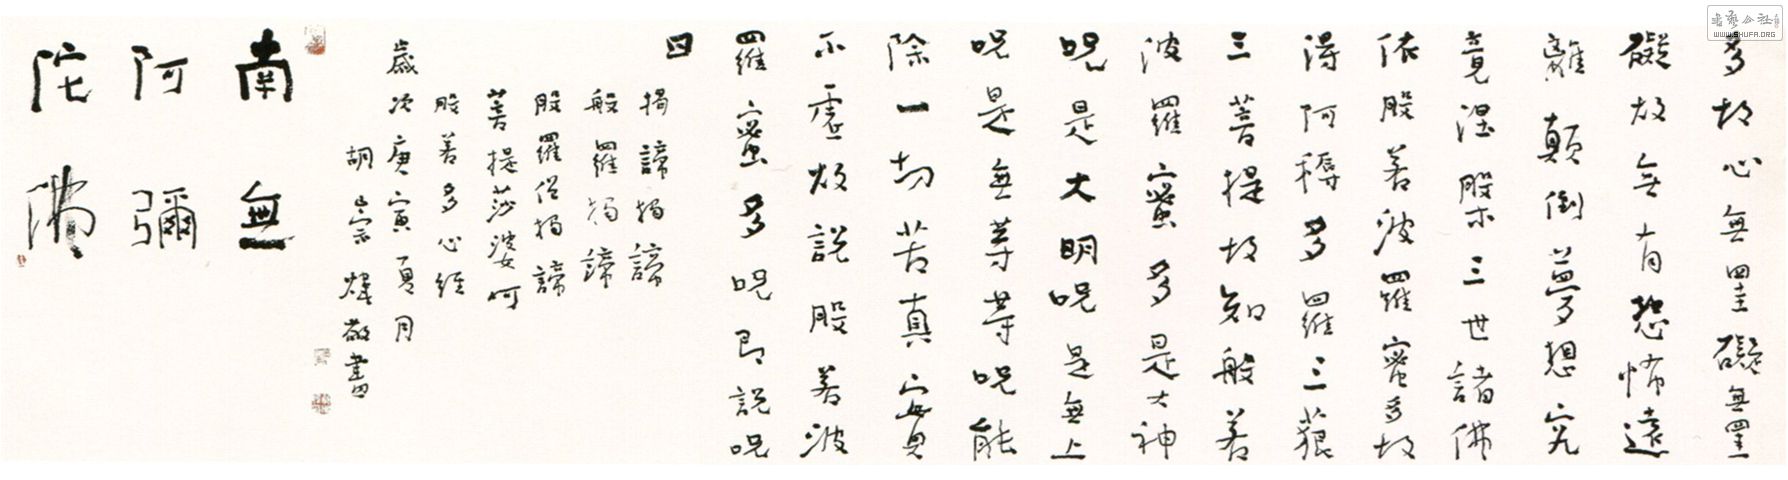 多故心無罣礙無罣
礙故無有恐怖遠
離顛倒夢想究
竟涅股木三世諸佛
依般若波羅蜜多故
得阿耨多羅三藐
三菩提故知般若
波羅蜜多是大神
呪是大明呪是無上
呪是無等等呪能
除一切苦真實
不虛故說般若波
羅蜜多呪即說呪
曰
揭諦揭諦
般羅揭諦
般羅僧揭諦
菩提莎婆呵
般若多心經
歲次庚寅夏月
胡宗煒敬書
南無
阿彌
陀佛
書藝公社
WWW.SHUFA.ORG